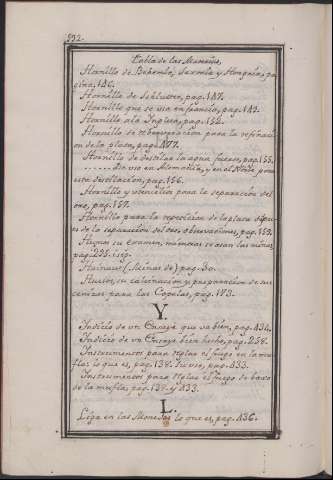 592.
Tabla de las Materias.
Hornillo de Bohemia, Saxonia y Hungria, pa-
gina, 146.
Hornillo de Schluter, pag. 147.
Hornillo que se usa en francia, pag. 149.
Hornillo ala Inglesa, pag. 152.
Hornillo de reberveracion para la refinaci-
on de la plata, pag. 177.
Hornillo de destilar la agua fuerte, pag. 155.
en Alemania, y en el Norte para
esta destilacion, pag. 156.
Hornillo y utencilios para la separacion del
oro, pag. 157.
Hornillo para la reposicion de la plata despu-
es de la separacion del oro, observaciones, pag. 159.
su examen, minas,
pag. 235. i sig.
Hainaut (Minas de) pag. 30.
Huesos, su calcinacion y preparacion de sus
cenizas para las Copelas, pag. 173.
Y.
Indicio de un Ensaye que va bien, pag. 434.
Indicio de un Ensaye bien hecho, pag. 258.
Instrumentos para reglar el fuego en la mu-
fla: lo que es, pag. 138. Su uso, pag. 433.
Instrumentos para reglar el fuego de baxo
de la mufla, pag. 138. y 433.
L.
Liga en las Monedas lo que es, pag. 436.